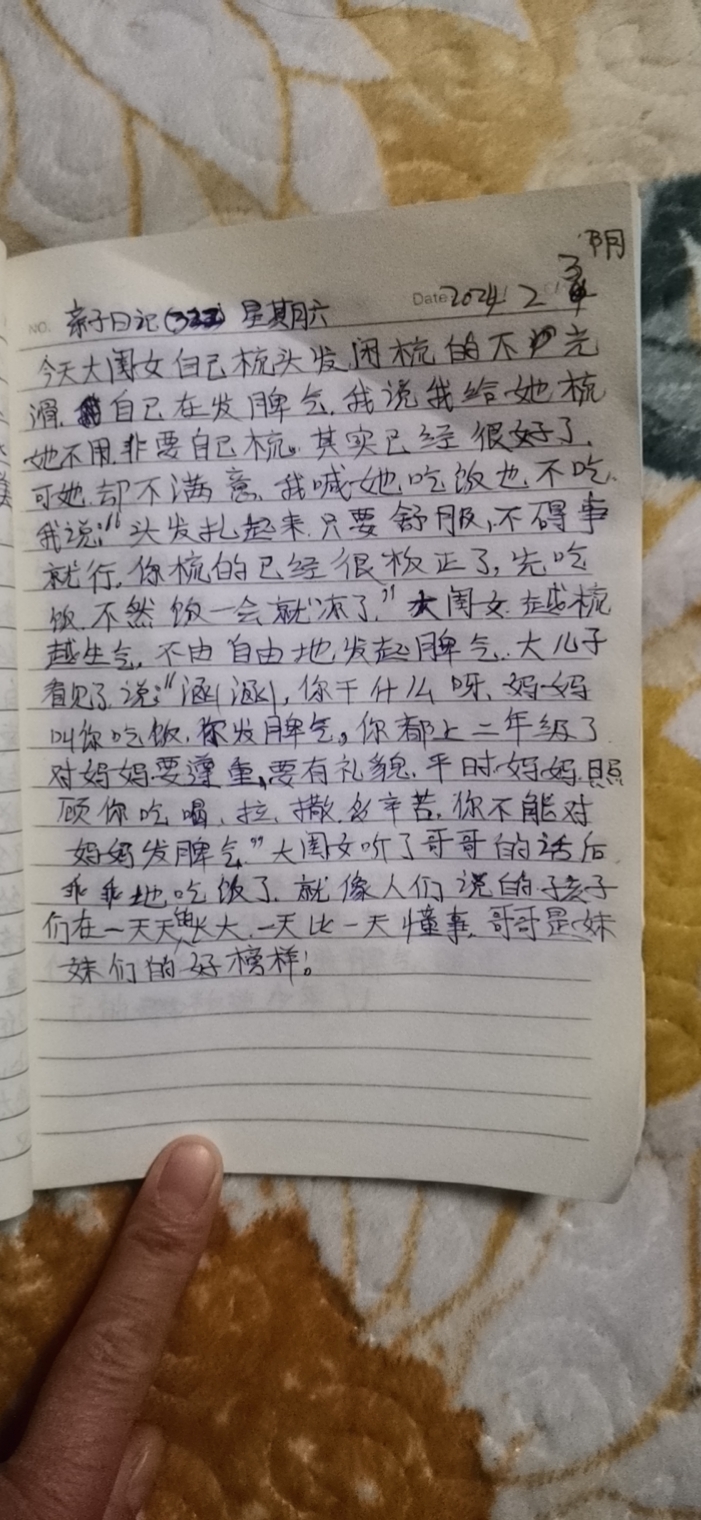 阴
NO. 亲子日记(322) 星期六 Date 2024 2 3
今天大闺女自己梳头发,因梳的不光
滑,自己在发脾气,我说我给她梳
她不用,非要自己梳。其实已经很好了,
可她却不满意,我喊她吃饭也不吃,
我说:“头发扎起来,只要舒服,不碍事
就行,你梳的已经很板正了,先吃
饭,不然饭一会就凉了,”大闺女越梳
越生气,不由自由地发起脾气,大儿子
看见了说:“涵涵,你干什么呀,妈妈
叫你吃饭,你发脾气,你都上二年级了
对妈妈要遵重,要有礼貌,平时妈妈照
顾你吃喝、拉、撒,多辛苦,你不能对
妈妈发脾气”大闺女听了哥哥的话后
乖乖地吃饭了,就像人们说的孩子
们在一天天的长大,一天比一天懂事,哥哥是妹
妹们的好榜样!